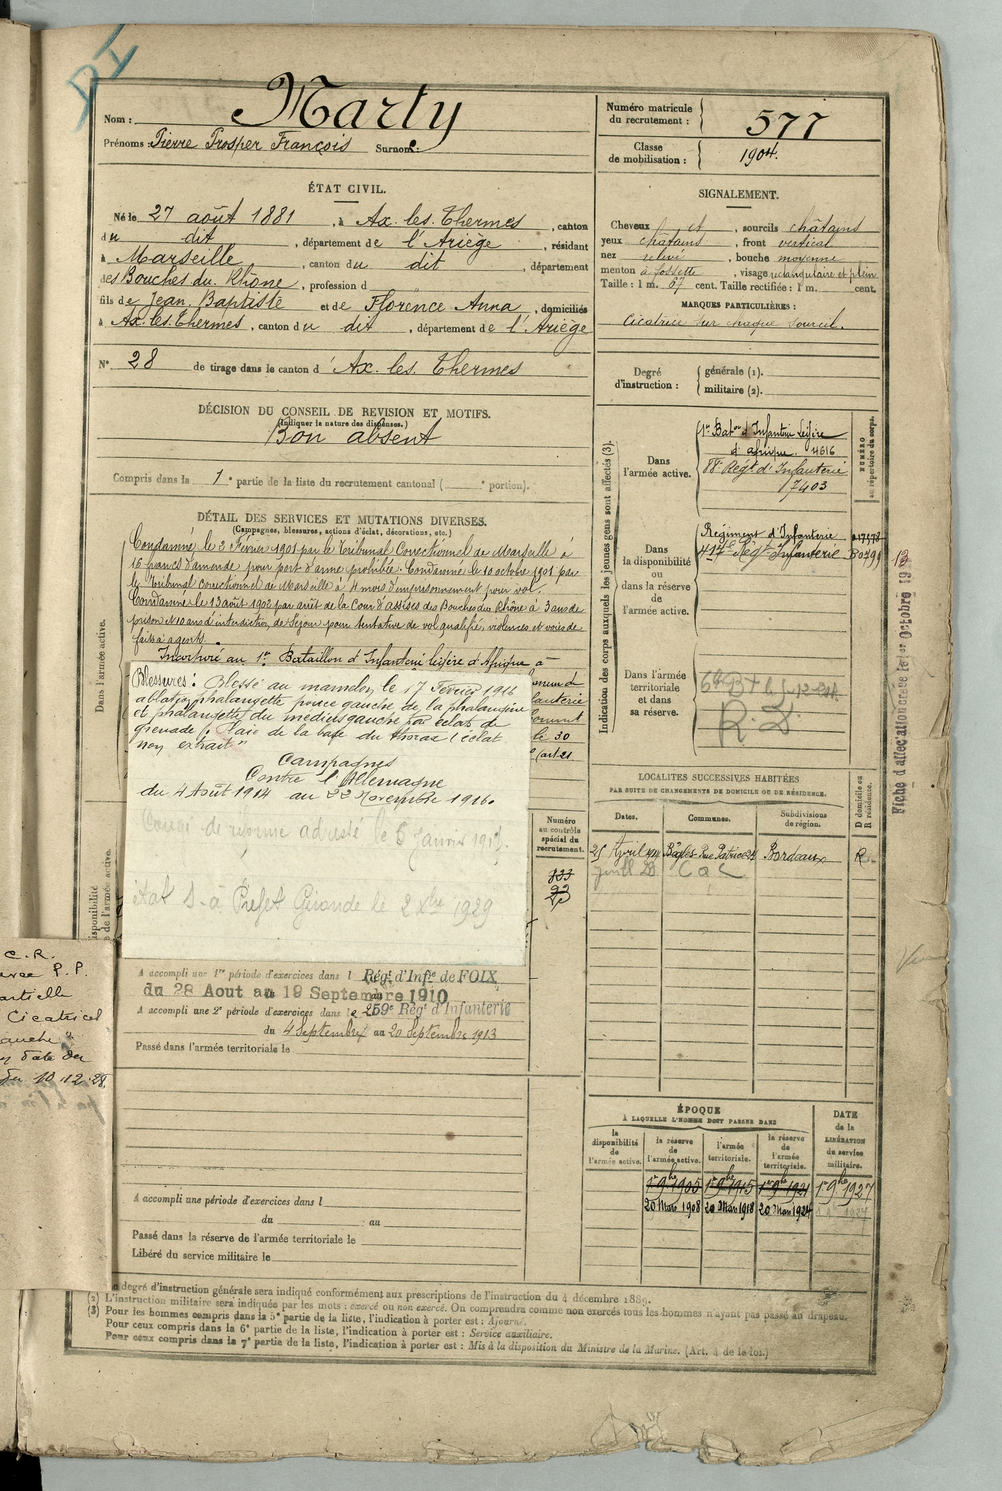 DI
Nom : Marty
Prénoms : Pierre Prosper François Surnom :
Numéro matricule du recrutement : 577
Classe de mobilisation : 1904.
ÉTAT CIVIL.
Né le 27 août 1881, à Ax. les. Thermes, canton
du dit, département de l'Ariège, résidant
à Marseille, canton du dit, département
des Bouches du Rhône, profession d
fils de Jean Baptiste et de Florence Anna, domiciliés
à Ax. les. Thermes, canton du dit, département de l'Ariège
N° 28 de tirage dans le canton d' Ax. les. Thermes
SIGNALEMENT.
Cheveux et, sourcils châtains
yeux châtains, front vertical
nez relevé, bouche moyenne
menton à fossette, visage rectangulaire et plein
Taille : 1 m. 67 cent. Taille rectifiée : 1 m. cent.
MARQUES PARTICULIÈRES :
Cicatrice sur chaque sourcil.
Degré d'instruction : générale (1).
militaire (2).
DÉCISION DU CONSEIL DE REVISION ET MOTIFS.
(Indiquer la nature des dispenses.)
Bon absent
Compris dans la 1e partie de la liste du recrutement cantonal ( e portion).
DÉTAIL DES SERVICES ET MUTATIONS DIVERSES.
(Campagnes, blessures, actions d'éclat, décorations, etc.)
Dans l'armée active.
Condamné le 2 Février 1901 par le Tribunal Correctionnel de Marseille à
16 francs d'amende pour port d'arme prohibée. Condamné le 10 octobre 1901 par
le Tribunal Correctionnel de Marseille à 4 mois d'emprisonnement pour vol.
Condamné le 13 août 1902 par arrêt de la Cour d'assises des Bouches du Rhône à 3 ans de
prison et 10 ans d'interdiction de séjour pour tentative de vol qualifié, violences et voies de
faits à agents.
Incorporé au 1er Bataillon d'Infanterie légère d'Afrique à
Blessures : Blessé au mamelon, le 17 Février 1916
ablation phalangette pouce gauche, de la phalangine
et phalangette du médius gauche par éclats de
grenade, Plaie de la base du thorax l'éclat
non extrait"
Campagnes
Contre l'Allemagne
du 4 Août 1914 au 22 Novembre 1916.
de réforme adressé le 6 Janvier 1917.
état S. à Préfet Gironde le 2 Xbre 1929
A accompli une 1re période d'exercices dans l Régt d'Infie de FOIX
du 28 Aout au 19 Septembre 1910
A accompli une 2e période d'exercices dans le 259e Régt d'Infanterie
du 4 Septembre au 20 Septembre 1913
Passé dans l'armée territoriale le
A accompli une période d'exercices dans l
du au
Passé dans la réserve de l'armée territoriale le
Libéré du service militaire le
C. R.
P. P.
Cicatrice
date du
du 10.12.28.
Numéro au contrôle spécial du recrutement.
Indication des corps auxquels les jeunes gens sont affectés (3).
NUMÉRO au répertoire du corps.
Dans l'armée active.
1er Baton d'Infanterie Légère
d'afrique. 4616
88e Régt d'Infanterie
17403
Dans la disponibilité ou dans la réserve de l'armée active.
Régiment d'Infanterie
417e Régt Infanterie
Dans l'armée territoriale et dans sa réserve.
Fiche d'affectation créée le 1er Octobre 19
13
LOCALITÉS SUCCESSIVES HABITÉES
PAR SUITE DE CHANGEMENTS DE DOMICILE OU DE RÉSIDENCE.
Dates. Communes. Subdivisions de région. D domicile ou R résidence.
Bordeaux R
ÉPOQUE
À LAQUELLE L'HOMME DOIT PASSER DANS
la disponibilité de l'armée active.
la réserve de l'armée active.
l'armée territoriale.
la réserve de l'armée territoriale.
DATE de la LIBÉRATION du service militaire.
1er 9bre 1905 1er 9bre 1915 1er 9bre 1921 1er 9bre 1927
20 Mars 1908 20 Mars 1918 20 Mars 1924
degré d'instruction générale sera indiqué conformément aux prescriptions de l'instruction du 4 décembre 1889.
(2) L'instruction militaire sera indiquée par les mots : exercé ou non exercé. On comprendra comme non exercés tous les hommes n'ayant pas passé au drapeau.
(3) Pour les hommes compris dans la 5e partie de la liste, l'indication à porter est : Ajourné.
Pour ceux compris dans la 6e partie de la liste, l'indication à porter est : Service auxiliaire.
Pour ceux compris dans la 7e partie de la liste, l'indication à porter est : Mis à la disposition du Ministre de la Marine. (Art. 4 de la loi.)